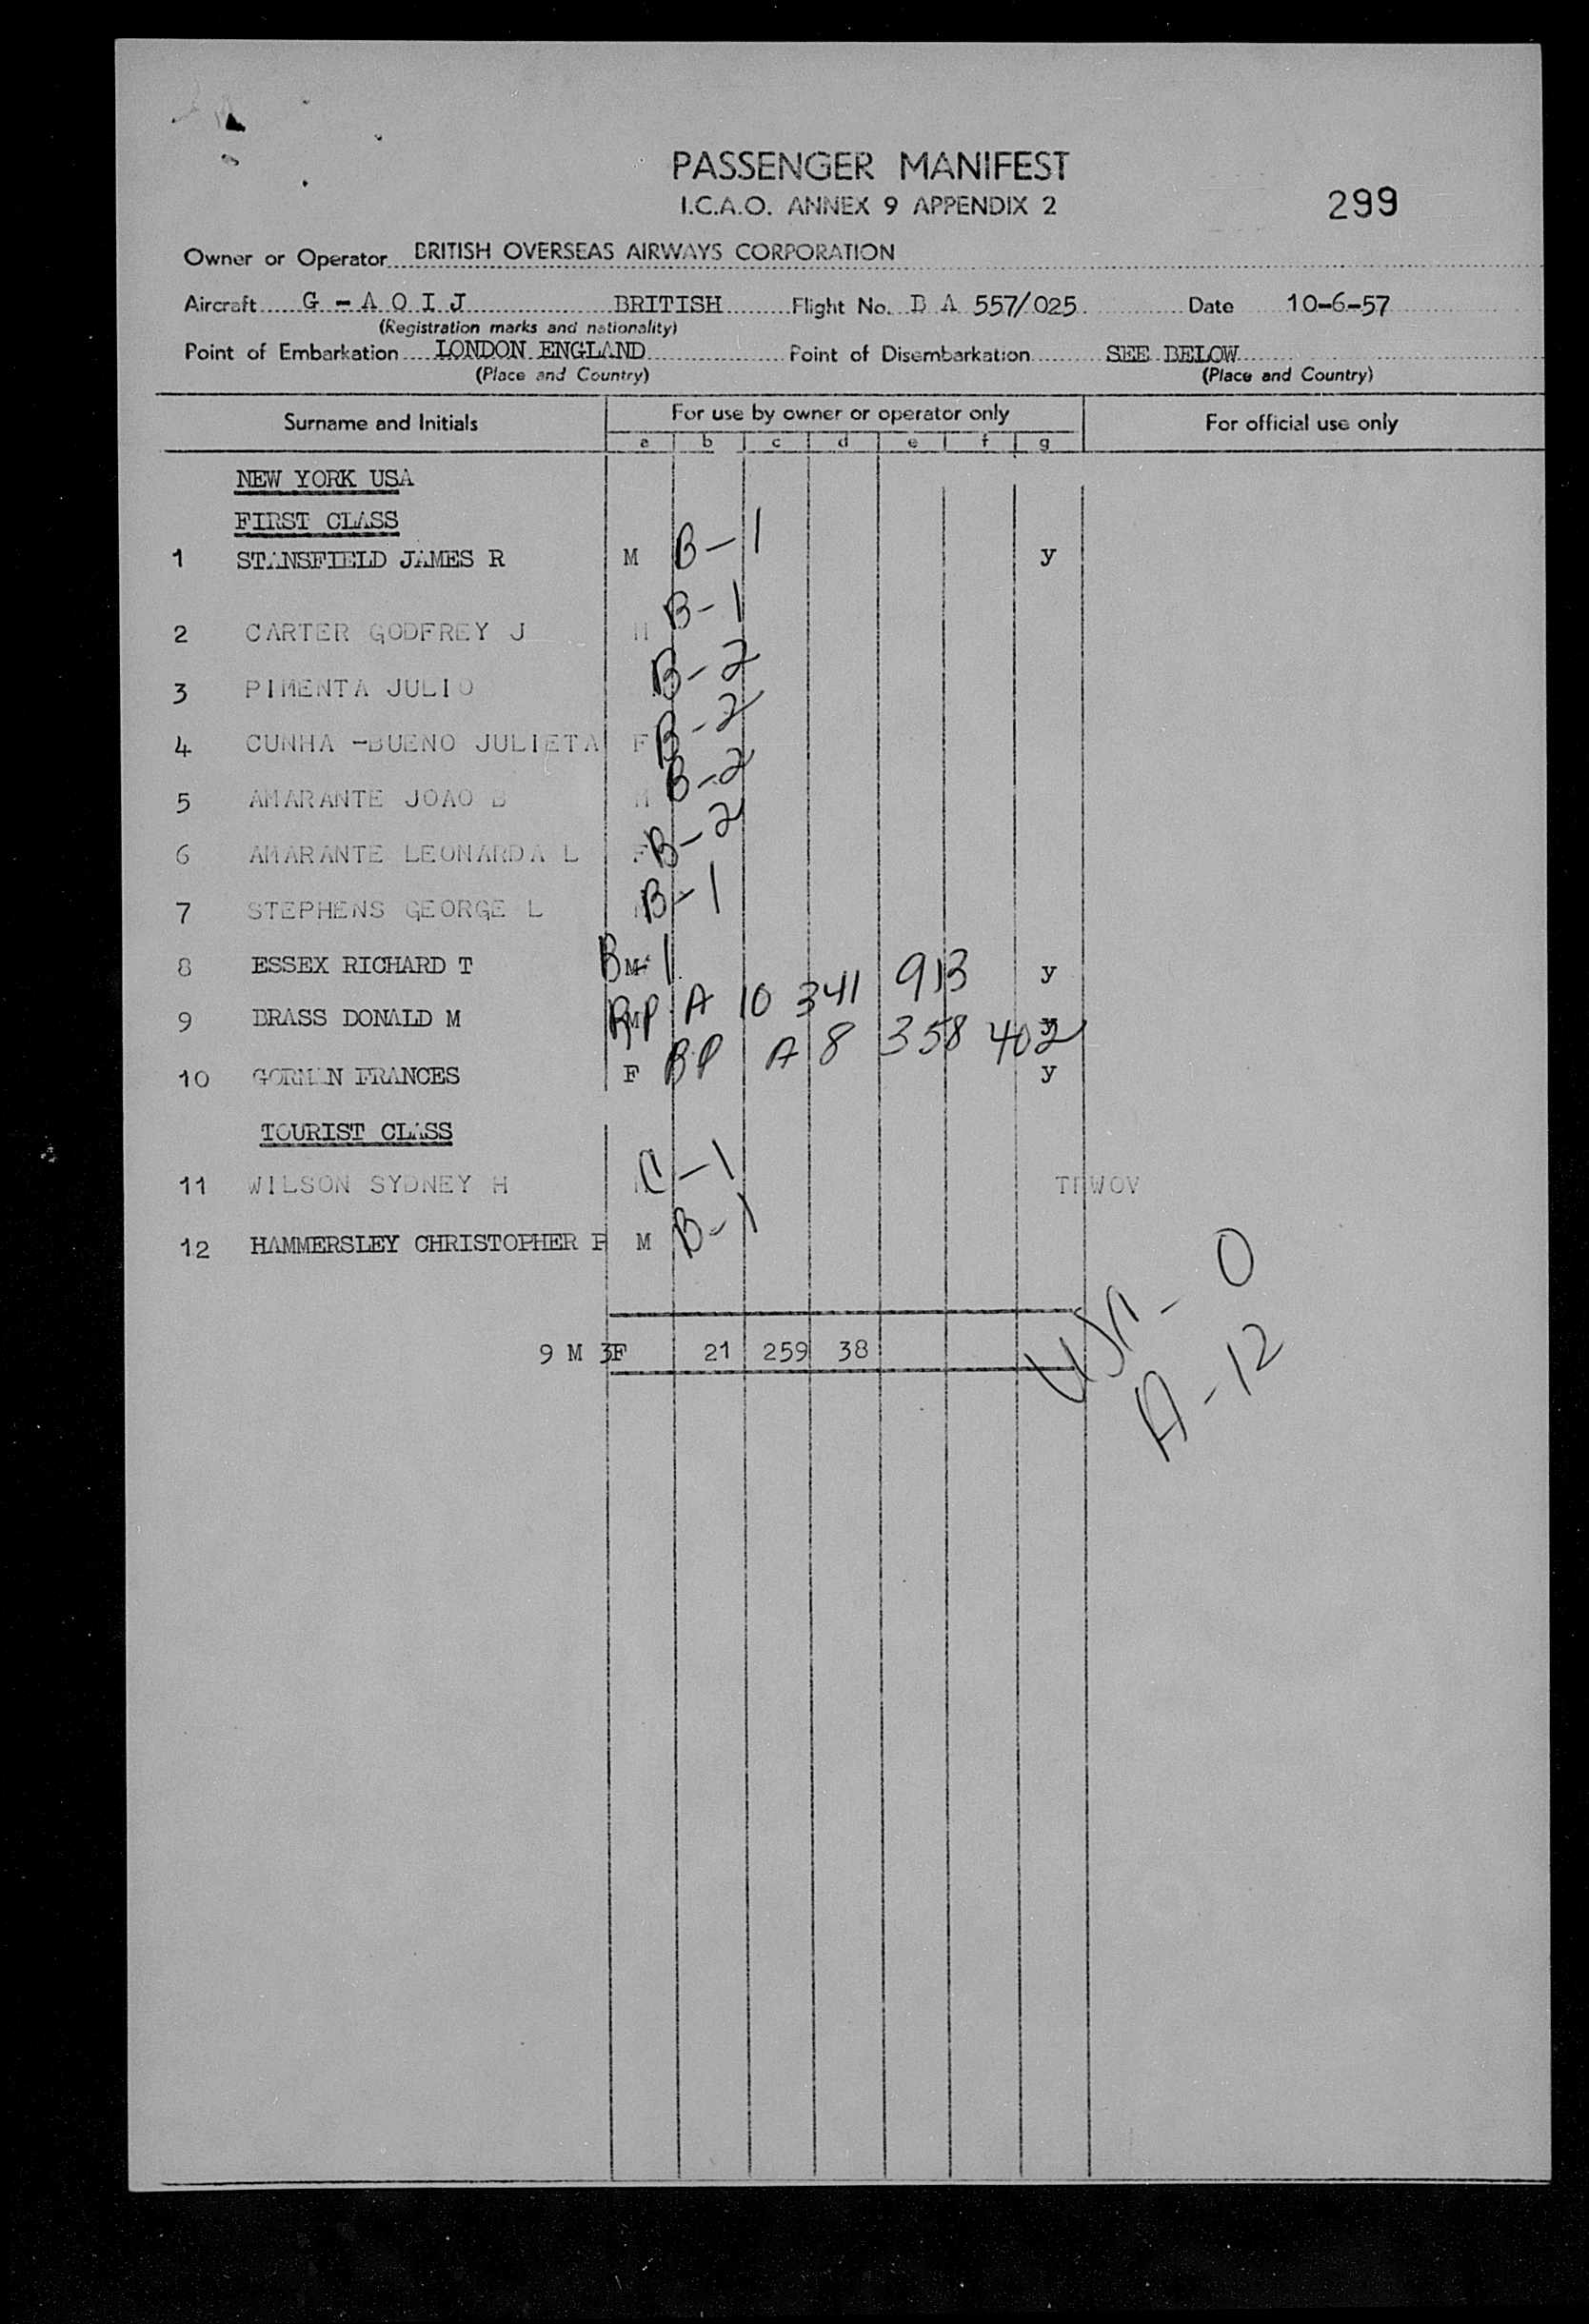 PASSENGER MANIFEST
I.C.A.O. ANNEX 9 APPENDIX 2
299
Owner or Operator BRITISH OVERSEAS AIRWAYS CORPORATION
Aircraft G - A O I J BRITISH Flight No. B A 557/025 Date 10-6-57
(Registration marks and nationality)
Point of Embarkation LONDON ENGLAND Point of Disembarkation SEE BELOW
(Place and Country) (Place and Country)
Surname and Initials For use by owner or operator only For official use only
a b c d e f g
NEW YORK USA
FIRST CLASS
1 STANSFIELD JAMES R M B-1 y
2 CARTER GODFREY J M B-1
3 PIMENTA JULIO B-2
4 CUNHA -BUENO JULIETA F B-2
5 AMARANTE JOAO B M B-2
6 AMARANTE LEONARDA L F B-2
7 STEPHENS GEORGE L B-1
8 ESSEX RICHARD T M B-1 y
9 BRASS DONALD M M RP A 10 341 913 y
10 GORMAN FRANCES F BP A 8 358 402 y
TOURIST CLASS
11 WILSON SYDNEY H C-1 TRWOV
12 HAMMERSLEY CHRISTOPHER P M B-1
9 M 3F 21 259 38
- 0
A-12